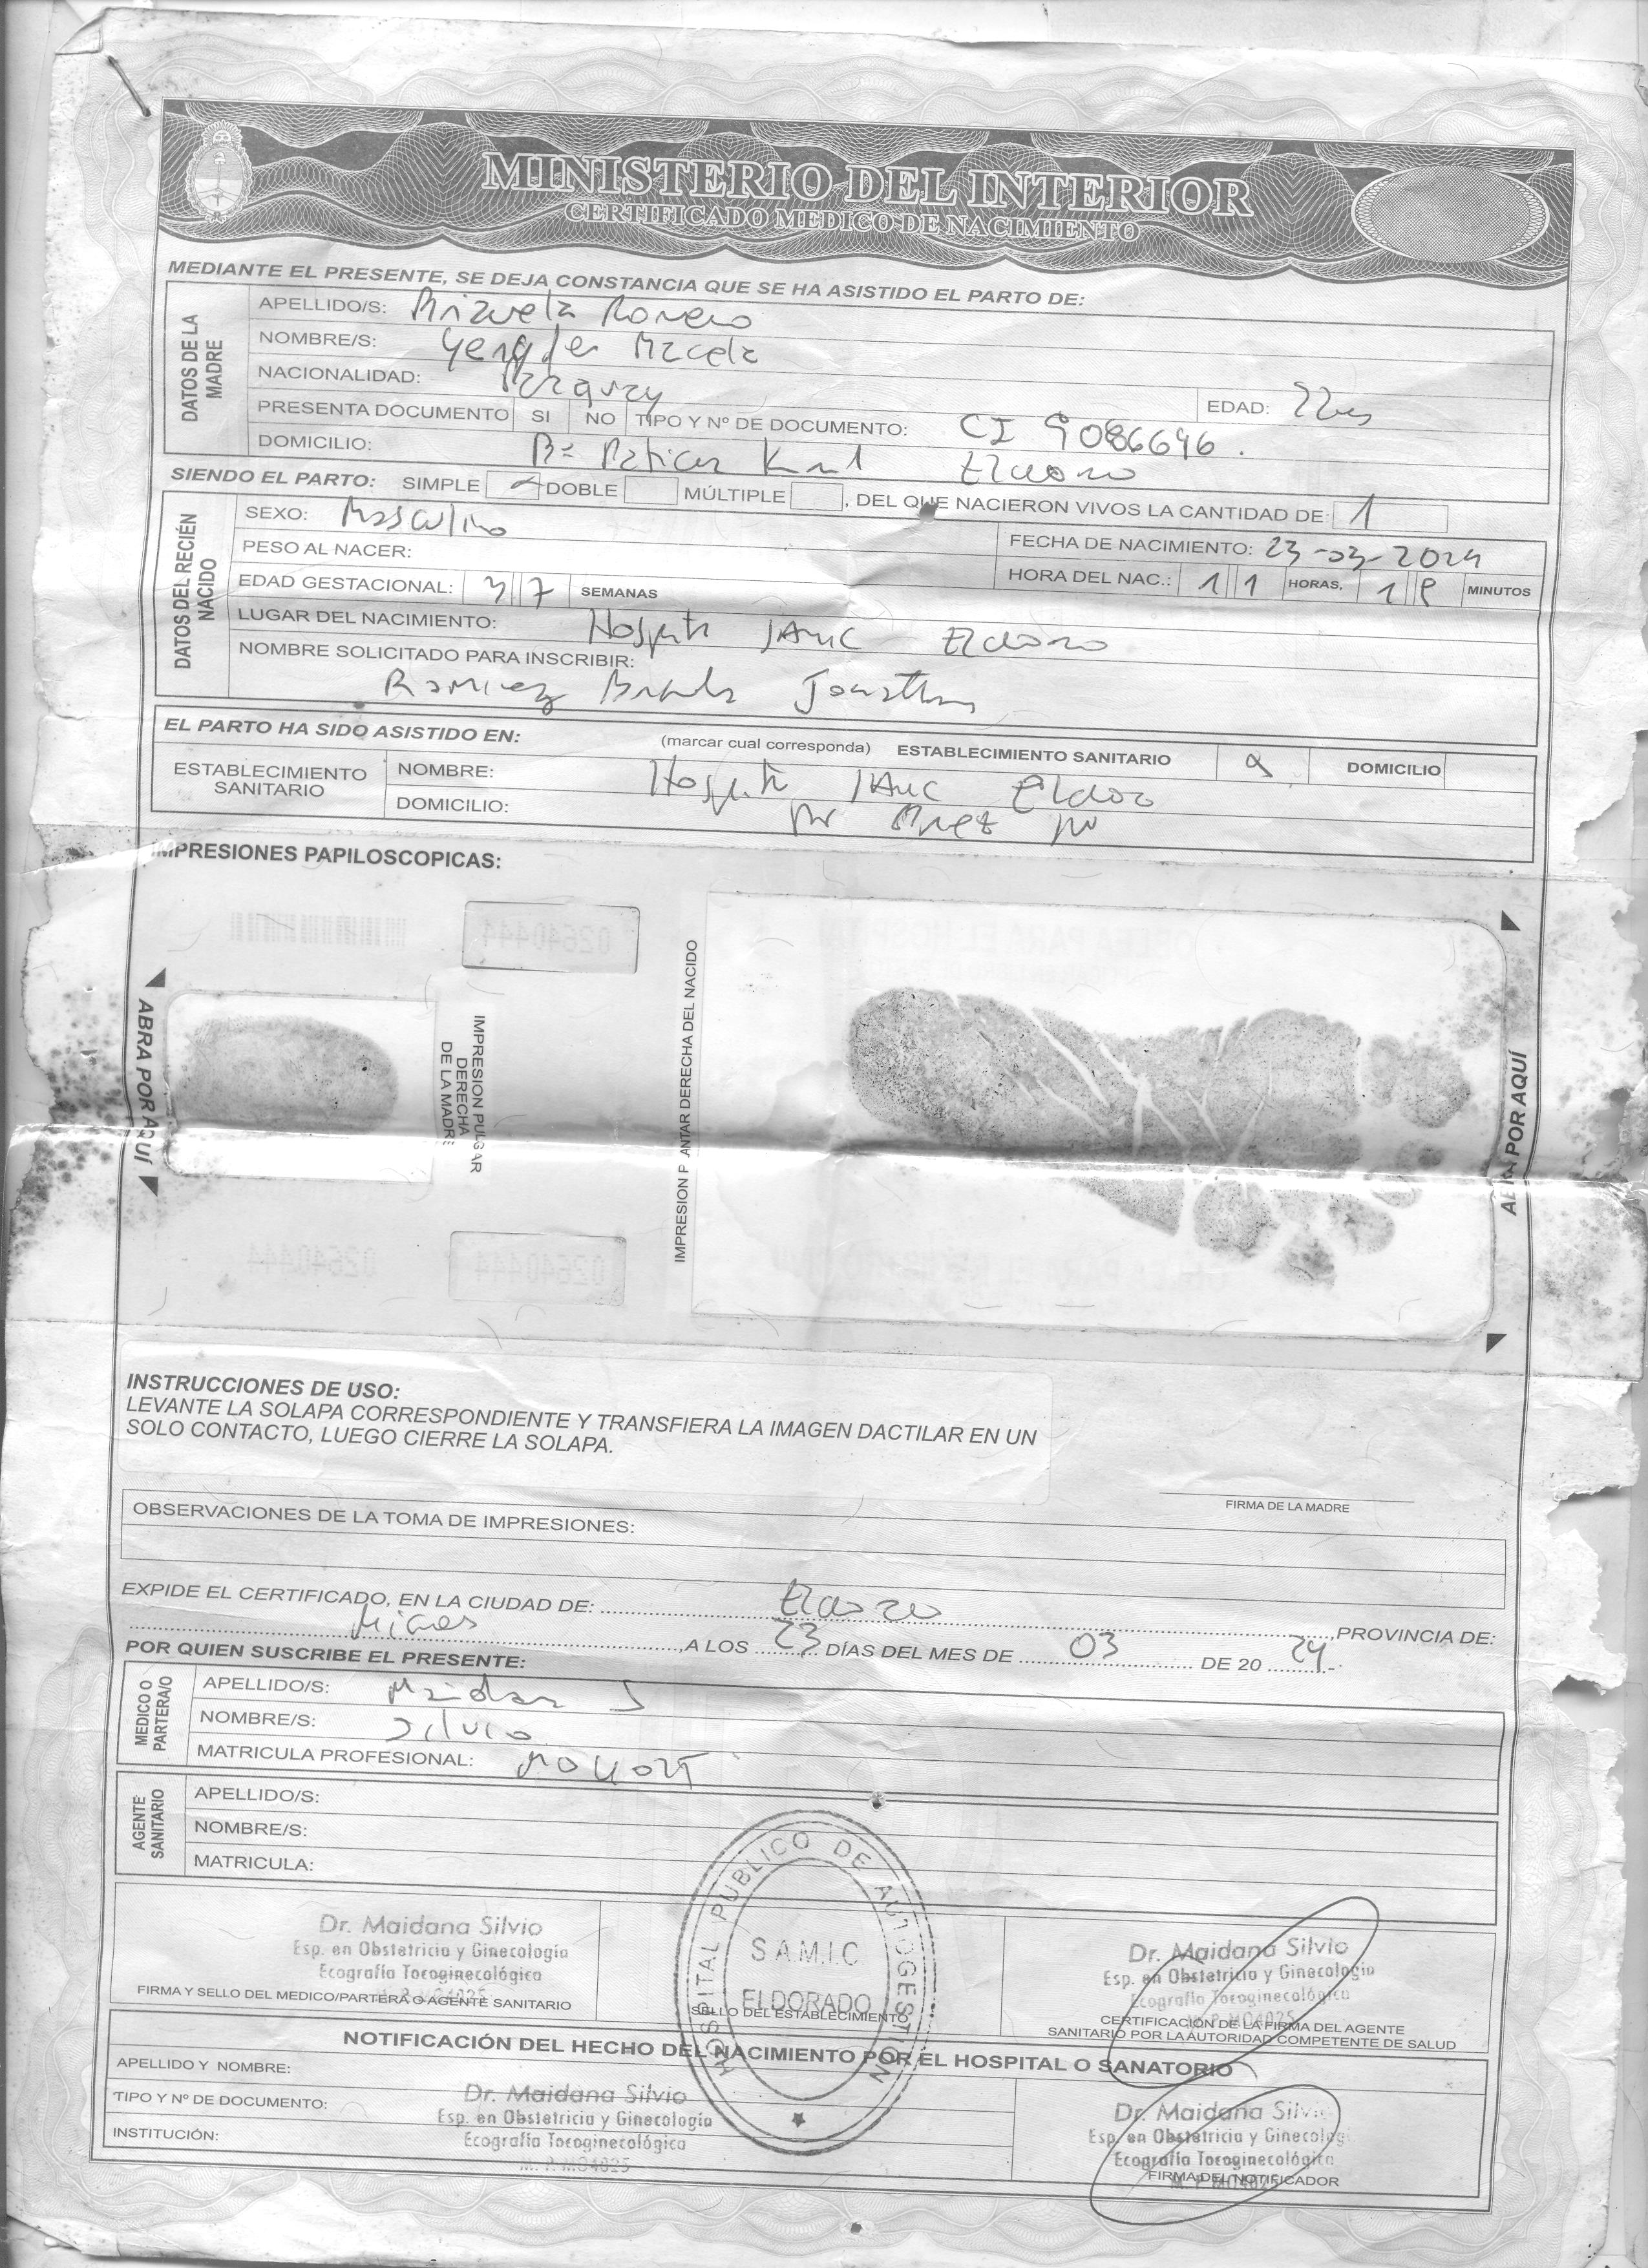 MINISTERIO DEL INTERIOR
CERTIFICADO MEDICO DE NACIMIENTO
MEDIANTE EL PRESENTE, SE DEJA CONSTANCIA QUE SE HA ASISTIDO EL PARTO DE:
DATOS DE LA MADRE
APELLIDO/S: Romero
NOMBRE/S:
NACIONALIDAD: Paraguay
EDAD: 22
PRESENTA DOCUMENTO SI NO TIPO Y Nº DE DOCUMENTO: CI 9086696.
DOMICILIO: Km 1 Eldorado
SIENDO EL PARTO: SIMPLE DOBLE MÚLTIPLE , DEL QUE NACIERON VIVOS LA CANTIDAD DE: 1
DATOS DEL RECIÉN NACIDO
SEXO: Masculino
PESO AL NACER:
FECHA DE NACIMIENTO: 23-03-2024
EDAD GESTACIONAL: 37 SEMANAS
HORA DEL NAC.: 11 HORAS, 18 MINUTOS
LUGAR DEL NACIMIENTO: Hospital SAMIC Eldorado
NOMBRE SOLICITADO PARA INSCRIBIR:
Ramirez Jonathan
EL PARTO HA SIDO ASISTIDO EN: (marcar cual corresponda) ESTABLECIMIENTO SANITARIO DOMICILIO
ESTABLECIMIENTO SANITARIO
NOMBRE: Hospital SAMIC Eldorado
DOMICILIO:
IMPRESIONES PAPILOSCOPICAS:
02640444
ABRA POR AQUÍ
IMPRESION PULGAR DERECHA DE LA MADRE
IMPRESION PLANTAR DERECHA DEL NACIDO
ABRA POR AQUÍ
02640444 02640444
INSTRUCCIONES DE USO:
LEVANTE LA SOLAPA CORRESPONDIENTE Y TRANSFIERA LA IMAGEN DACTILAR EN UN
SOLO CONTACTO, LUEGO CIERRE LA SOLAPA.
FIRMA DE LA MADRE
OBSERVACIONES DE LA TOMA DE IMPRESIONES:
EXPIDE EL CERTIFICADO, EN LA CIUDAD DE: Eldorado ,PROVINCIA DE:
Misiones ,A LOS 23 DÍAS DEL MES DE 03 DE 20 24.-
POR QUIEN SUSCRIBE EL PRESENTE:
MEDICO O PARTERA/O
APELLIDO/S: Maidana
NOMBRE/S: Silvio
MATRICULA PROFESIONAL: MO4025
AGENTE SANITARIO
APELLIDO/S:
NOMBRE/S:
MATRICULA:
HOSPITAL PUBLICO DE AUTOGESTION
S.A.M.I.C
ELDORADO
Dr. Maidana Silvio
Esp. en Obstetricia y Ginecología
Ecografía Tocoginecológica
M. P. MO4025
FIRMA Y SELLO DEL MEDICO/PARTERA O AGENTE SANITARIO
SELLO DEL ESTABLECIMIENTO
Dr. Maidana Silvio
Esp. en Obstetricia y Ginecología
Ecografía Tocoginecológica
M. P. MO4025
CERTIFICACIÓN DE LA FIRMA DEL AGENTE
SANITARIO POR LA AUTORIDAD COMPETENTE DE SALUD
NOTIFICACIÓN DEL HECHO DEL NACIMIENTO POR EL HOSPITAL O SANATORIO
APELLIDO Y NOMBRE:
TIPO Y Nº DE DOCUMENTO:
INSTITUCIÓN:
Dr. Maidana Silvio
Esp. en Obstetricia y Ginecología
Ecografía Tocoginecológica
M. P. MO4025
Dr. Maidana Silvio
Esp. en Obstetricia y Ginecología
Ecografía Tocoginecológica
M. P. MO4025
FIRMA DEL NOTIFICADOR